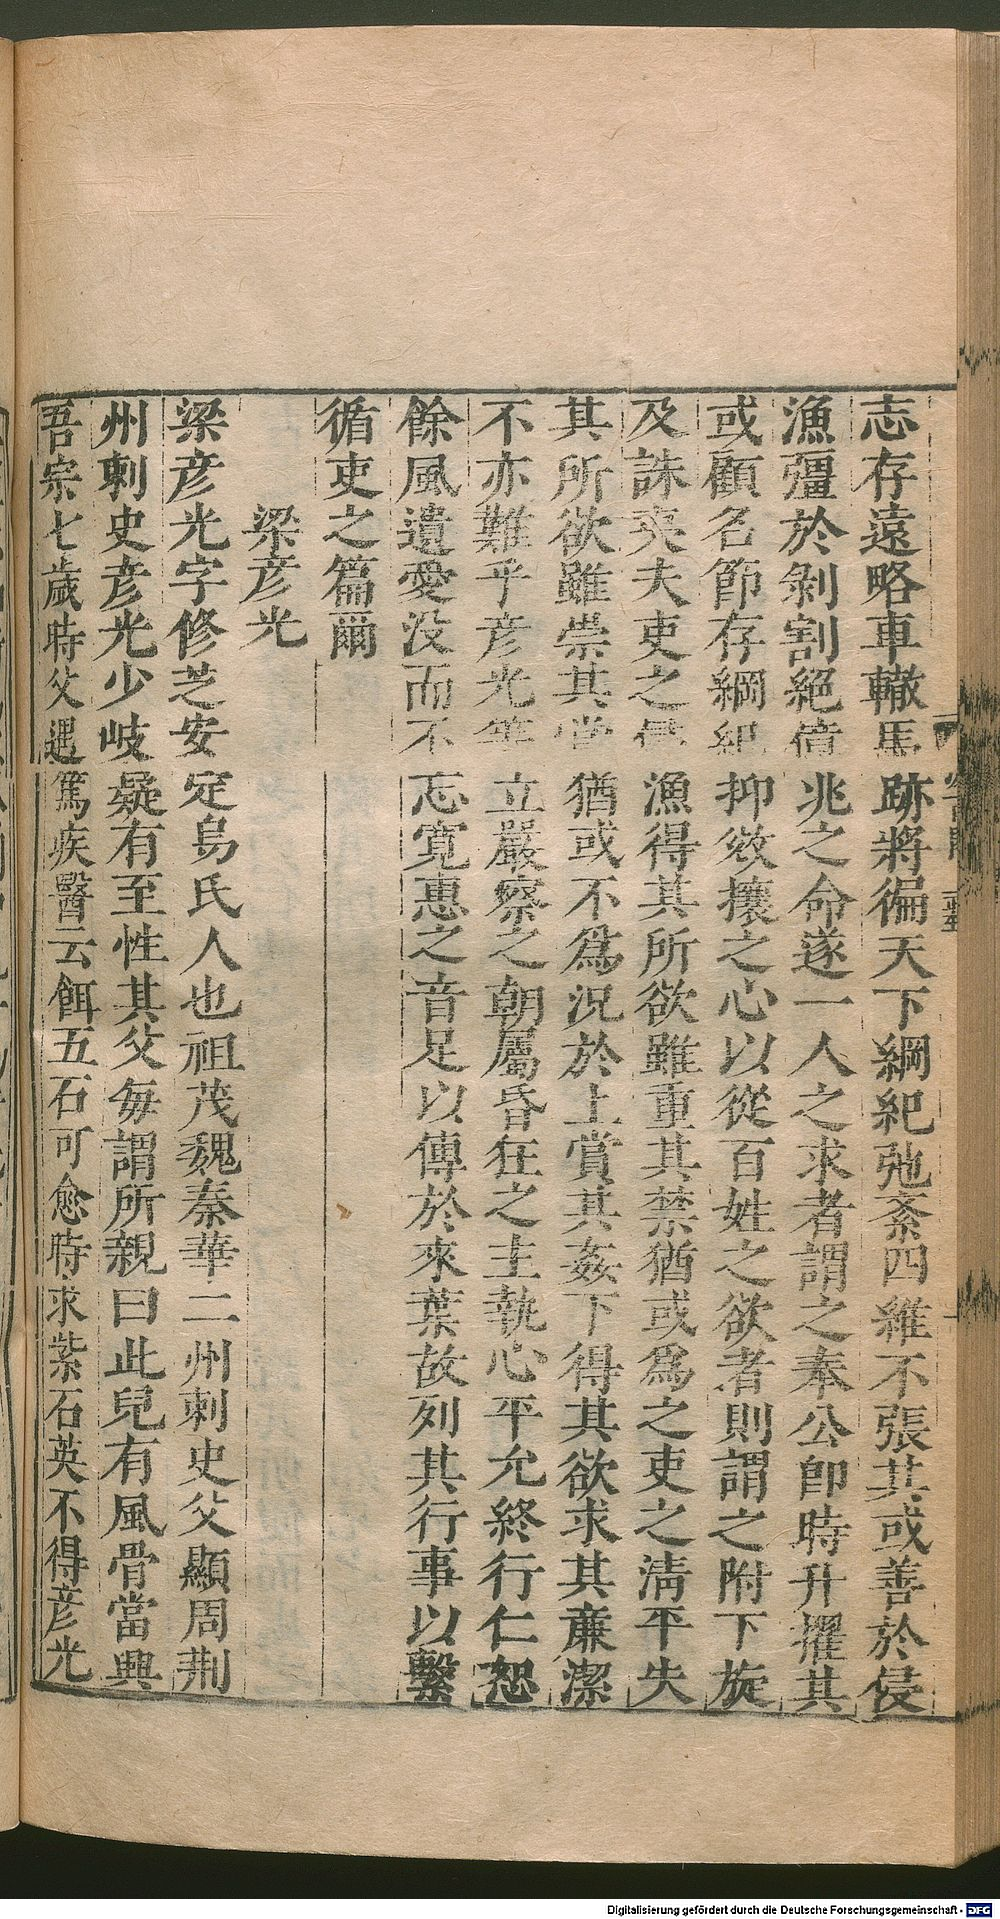 志存遠略車轍馬跡將徧天下綱紀弛紊四維不張其或善於侵
漁彊於剝割絕億兆之命遂一人之求者謂之奉公卽時升擢其
或顧名節存綱紀抑效攘之心以從百姓之欲者則謂之附下旋
及誅夷夫吏之侵漁得其所欲雖重其禁猶或爲之吏之淸平失
其所欲雖崇其賞猶或不爲況於上賞其姦下得其欲求其亷潔
不亦難乎彦光等立嚴察之朝屬昏狂之主執心平允終行仁恕
餘風遺愛没而不忘寬惠之音足以傳於來葉故列其行事以繫
循吏之篇爾
梁彦光
梁彦光字修芝安定烏氏人也祖茂魏秦華二州刺史父顯周荆
州刺史彦光少岐嶷有至性其父每謂所親曰此兒有風骨當興
吾宗七歲時父遇篤疾醫云餌五石可愈時求紫石英不得彦光
Digitalisierung gefördert durch die Deutsche Forschungsgemeinschaft - DFG